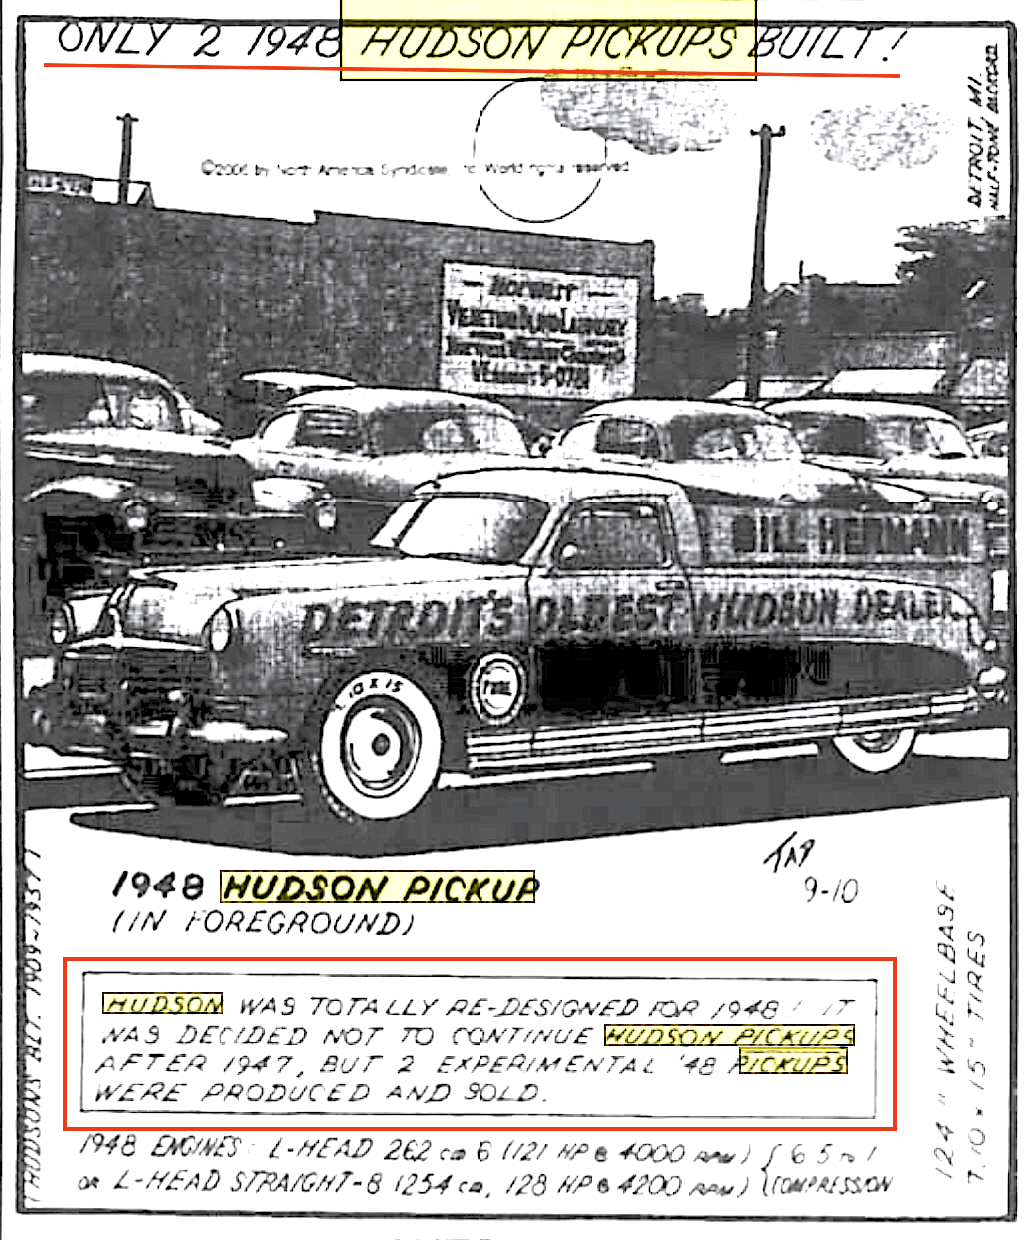 ONLY 2 1948 HUDSON PICKUPS BUILT!
DETROIT, MI.
©2006 by North America Syndicate, Inc. World rights reserved.
BILL HERMANN
DETROIT'S OLDEST HUDSON DEALER
7.10 X 15
1948 HUDSON PICKUP
(IN FOREGROUND)
TAD
9-10
HUDSON WAS TOTALLY RE-DESIGNED FOR 1948! IT
WAS DECIDED NOT TO CONTINUE HUDSON PICKUPS
AFTER 1947, BUT 2 EXPERIMENTAL '48 PICKUPS
WERE PRODUCED AND SOLD.
1948 ENGINES: L-HEAD 262 CID 6 (121 HP @ 4000 RPM)
OR L-HEAD STRAIGHT-8 (254 CID, 128 HP @ 4200 RPM)
6.5 TO 1
COMPRESSION
124" WHEELBASE
7.10 x 15" TIRES